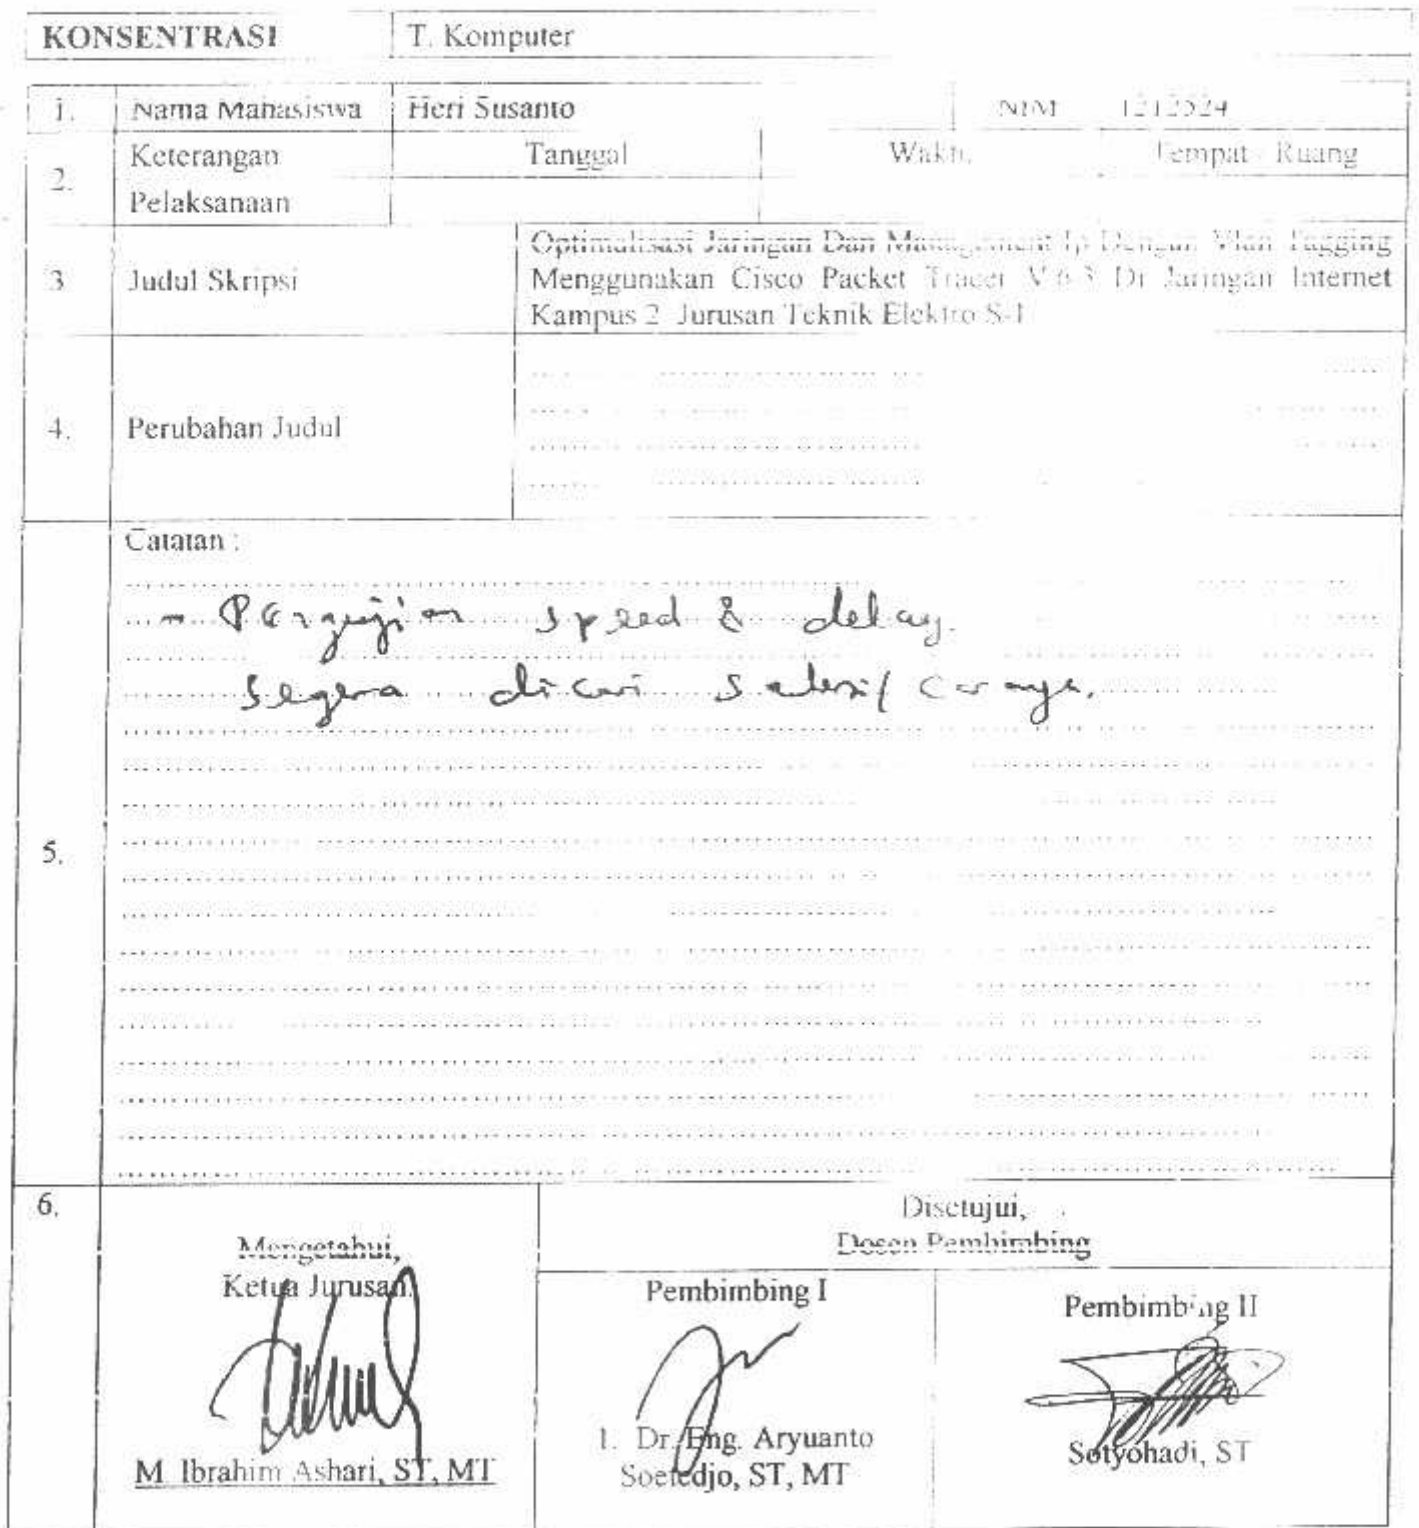 KONSENTRASI T. Komputer
1. Nama Mahasiswa Heri Susanto NIM 1212524
2. Keterangan Pelaksanaan Tanggal Waktu Tempat / Ruang
3. Judul Skripsi
Optimalisasi Jaringan Dan Management Ip Dengan Vlan Tagging
Menggunakan Cisco Packet Tracer V.6.3 Di Jaringan Internet
Kampus 2 Jurusan Teknik Elektro S-1
4. Perubahan Judul
5. Catatan :
- Pengujian speed & delay.
segera dicari solusi/caranya.
6.
Mengetahui,
Ketua Jurusan
M. Ibrahim Ashari, ST, MT
Disetujui,
Dosen Pembimbing
Pembimbing I
1. Dr. Eng. Aryuanto
Soetedjo, ST, MT
Pembimbing II
Sotyohadi, ST